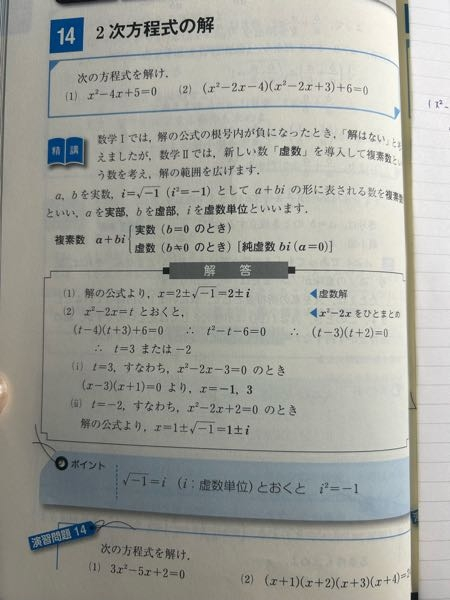 14 2次方程式の解
次の方程式を解け.
(1) x²−4x+5=0 (2) (x²−2x−4)(x²−2x+3)+6=0
精講
数学Ⅰでは,解の公式の根号内が負になったとき,「解はない」と考
えましたが,数学Ⅱでは,新しい数「虚数」を導入して複素数とい
う数を考え,解の範囲を広げます.
a, bを実数, i=√−1 (i²=−1) として a+bi の形に表される数を複素数
といい, aを実部, bを虚部, iを虚数単位といいます.
複素数 a+bi
実数 (b=0 のとき)
虚数 (b≠0 のとき) [純虚数 bi (a=0)]
解答
(1) 解の公式より, x=2±√−1=2±i ◀虚数解
(2) x²−2x=t とおくと, ◀x²−2xをひとまとめ
(t−4)(t+3)+6=0 ∴ t²−t−6=0 ∴ (t−3)(t+2)=0
∴ t=3 または −2
(ⅰ) t=3, すなわち, x²−2x−3=0 のとき
(x−3)(x+1)=0 より, x=−1, 3
(ⅱ) t=−2, すなわち, x²−2x+2=0 のとき
解の公式より, x=1±√−1=1±i
ポイント
√−1=i (i:虚数単位) とおくと i²=−1
演習問題 14
次の方程式を解け.
(1) 3x²−5x+2=0 (2) (x+1)(x+2)(x+3)(x+4)=